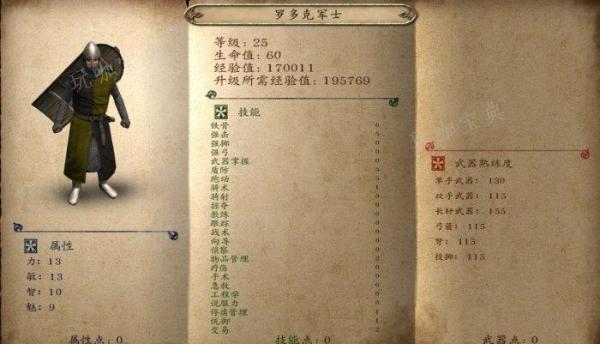 罗多克军士
等级: 25
生命值: 60
经验值: 170011
升级所需经验值: 195769
技能
铁骨
强击
强掷
强弓
武器掌握
盾防
跑动
骑术
骑射
掠夺
教练
跟踪
战术
向导
侦察
物品管理 2
疗伤
手术
急救
工程学
说服力
俘虏管理
统御
交易
武器熟练度
单手武器: 130
双手武器: 115
长杆武器: 155
弓箭: 115
弩: 115
投掷: 115
属性
力: 13
敏: 13
智: 10
魅: 9
属性点: 0
技能点: 0
武器点: 0